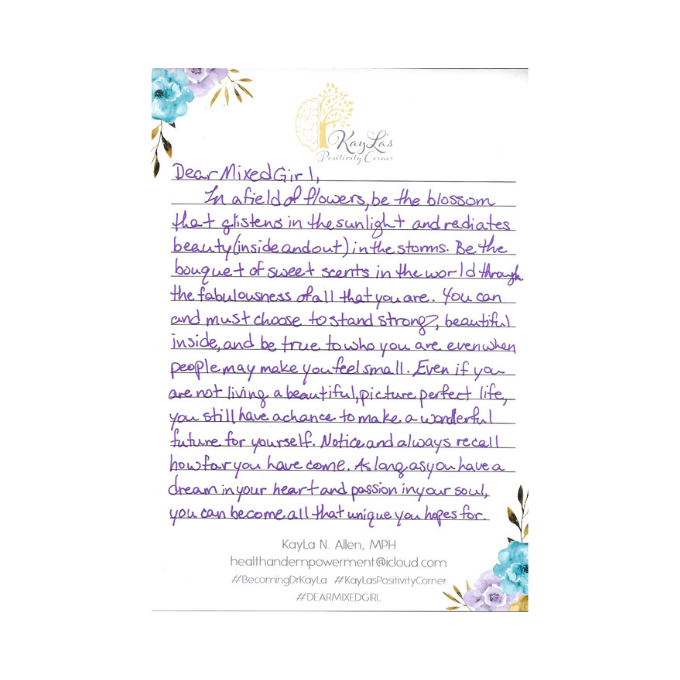 KayLa's
Positivity Corner
Dear Mixed Girl,
In a field of flowers, be the blossom
that glistens in the sunlight and radiates
beauty (inside and out) in the storms. Be the
bouquet of sweet scents in the world through
the fabulousness of all that you are. You can
and must choose to stand strong, beautiful
inside, and be true to who you are even when
people may make you feel small. Even if you
are not living a beautiful, picture perfect life,
you still have a chance to make a wonderful
future for yourself. Notice and always recall
how far you have come. As long as you have a
dream in your heart and passion in your soul,
you can become all that unique you hopes for.
KayLa N. Allen, MPH
healthandempowerment@icloud.com
#BecomingDrKayLa #KayLasPositivityCorner
#DEARMIXEDGIRL